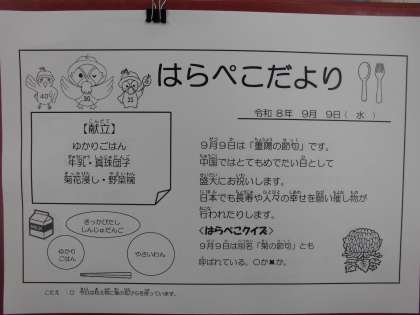 はらぺこだより
令和8年 9月 9日( 水 )
【献立】
ゆかりごはん
牛乳・真珠団子
菊花浸し・野菜椀
9月9日は「重陽の節句」です。
中国ではとてもめでたい日として
盛大にお祝いします。
日本でも長寿や人々の幸せを願い催し物が
行われたりします。
<はらぺこクイズ>
9月9日は別名「菊の節句」とも
呼ばれている。〇か✖か。
きっかびたし
しんじゅだんご
ゆかり
ごはん
やさいわん